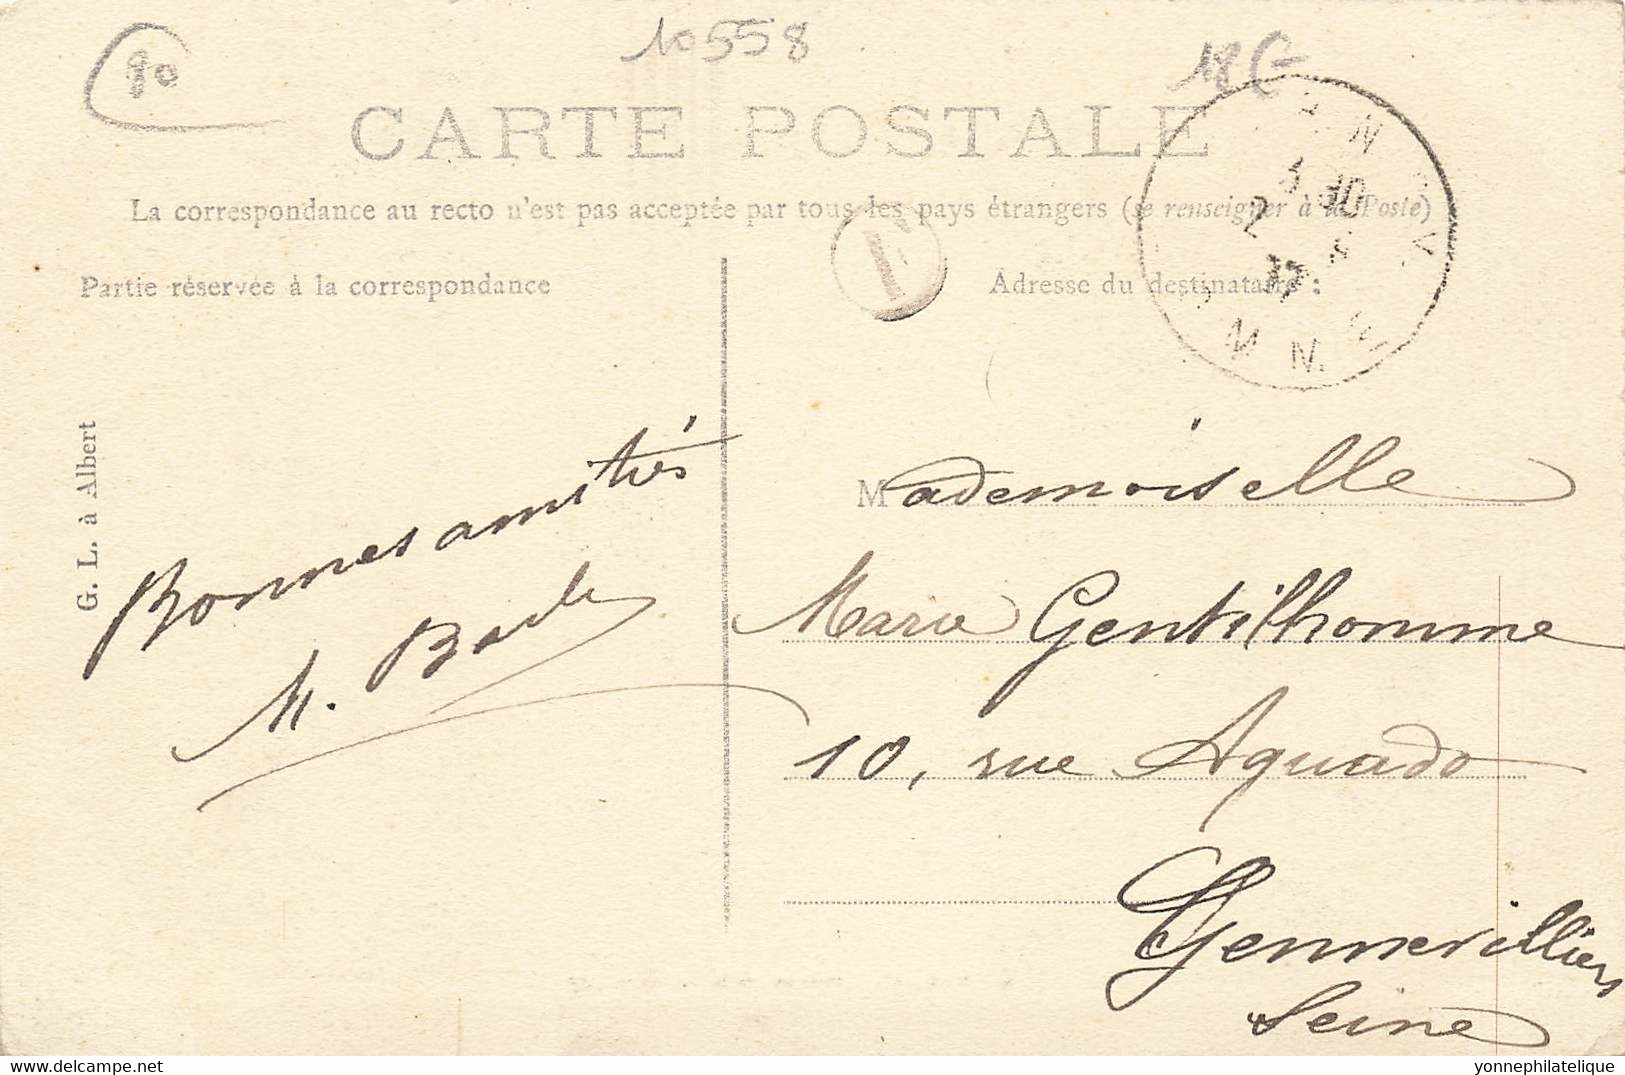 80
10558
18€
CARTE POSTALE
La correspondance au recto n'est pas acceptée par tous les pays étrangers (se renseigner à la Poste)
Partie réservée à la correspondance
Adresse du destinataire :
G. L. à Albert
Bonnes amitiés
M.
Mademoiselle
Marie Gentilhomme
10, rue Aguado
Gennevilliers
Seine
delcampe.net
yonnephilatelique